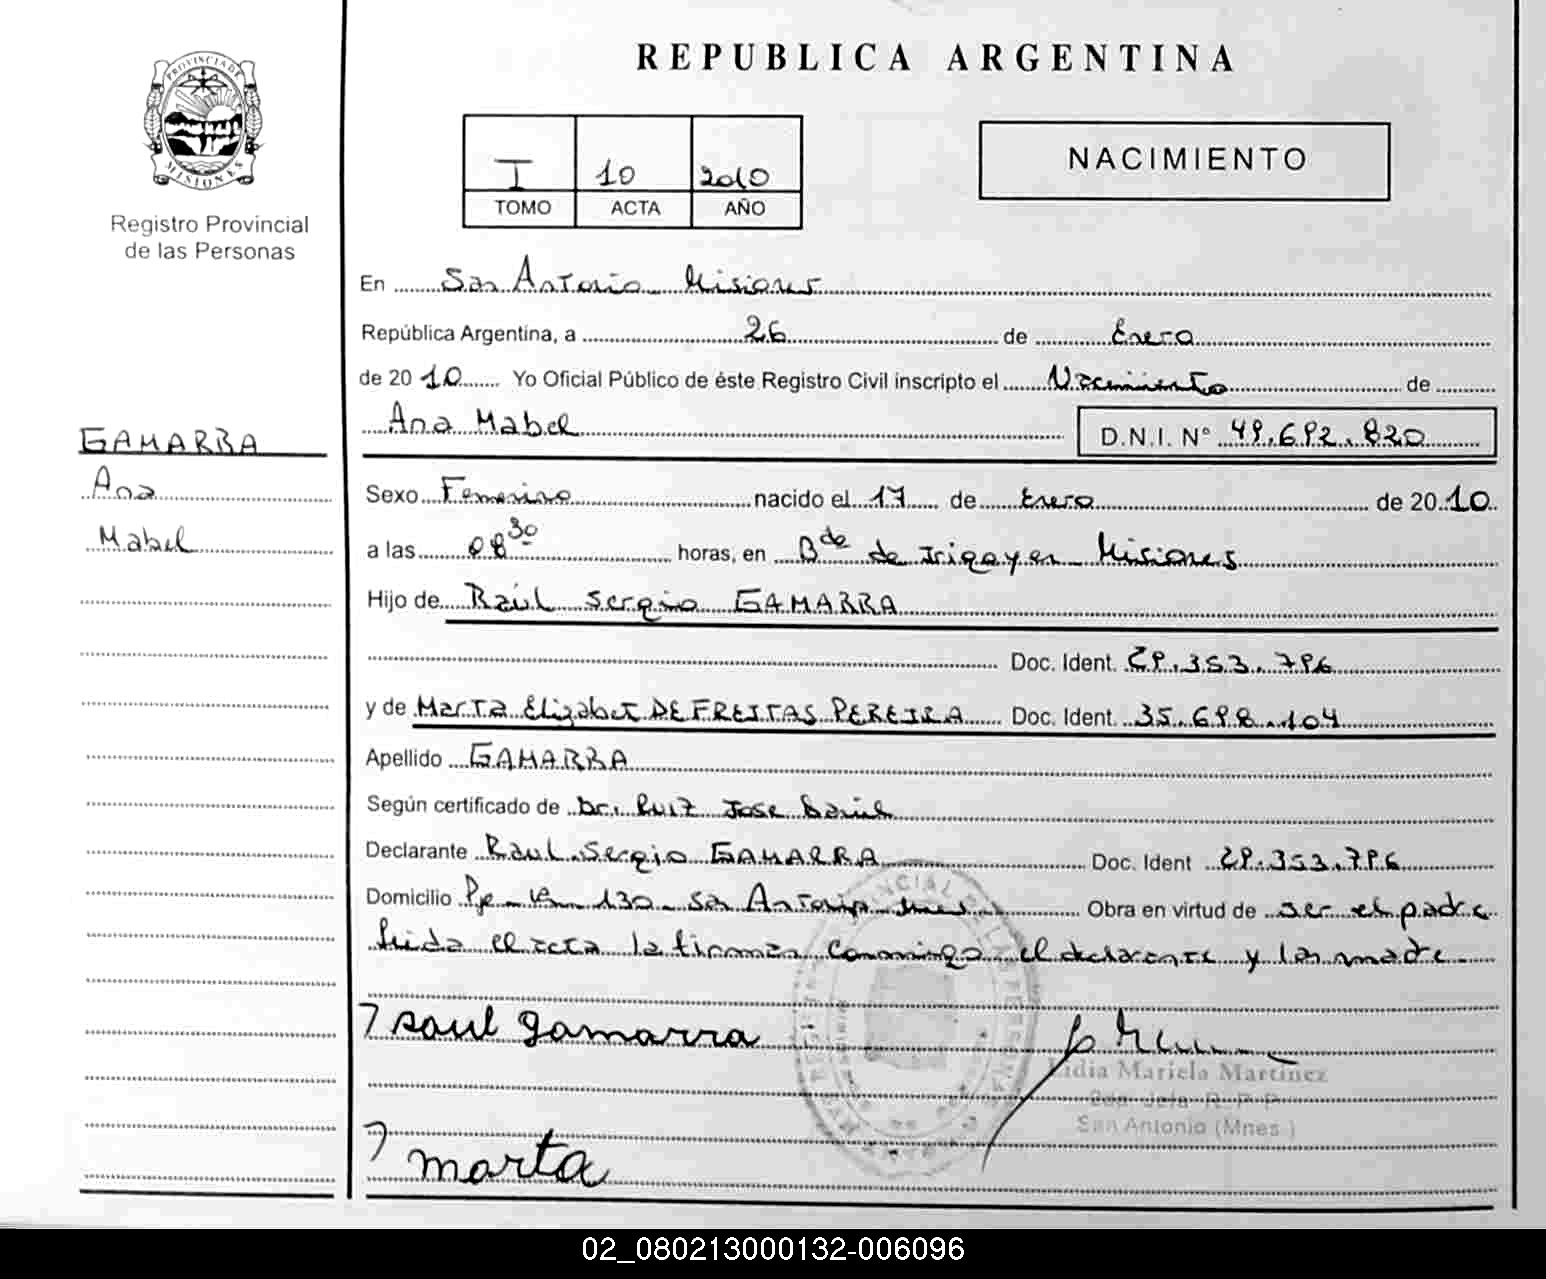 REPUBLICA ARGENTINA
PROVINCIA DE MISIONES
Registro Provincial
de las Personas
I 10 2010
TOMO ACTA AÑO
NACIMIENTO
En San Antonio Misiones
República Argentina, a 26 de Enero
de 2010 Yo Oficial Público de éste Registro Civil inscripto el Nacimiento de
Ana Mabel D.N.I. N° 49.692.820
GAMARRA
Ana
Mabel
Sexo Femenino nacido el 17 de Enero de 2010
a las 08 30 horas, en Bde de Irigoyen Misiones
Hijo de Raúl Sergio GAMARRA
Doc. Ident. 29.353.796
y de Marta Elizabet DE FREITAS PEREIRA Doc. Ident. 35.698.104
Apellido GAMARRA
Según certificado de Dr. Ruiz Jose Daniel
Declarante Raul Sergio GAMARRA Doc. Ident 29.353.796
Domicilio Pje - 130 - San Antonio Mnes Obra en virtud de ser el padre
leida el acta la firman conmigo el declarante y la madre
raul gamarra
Lidia Mariela Martinez
R. P. P.
San Antonio (Mnes.)
marta
02_080213000132-006096